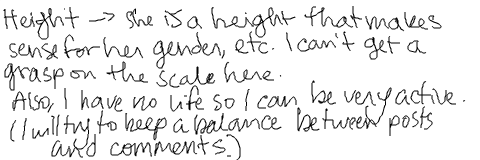 Height -> she is a height that makes
sense for her gender, etc. I can't get a
grasp on the scale here.
Also, I have no life so I can be very active.
(I will try to keep a balance between posts
and comments.)